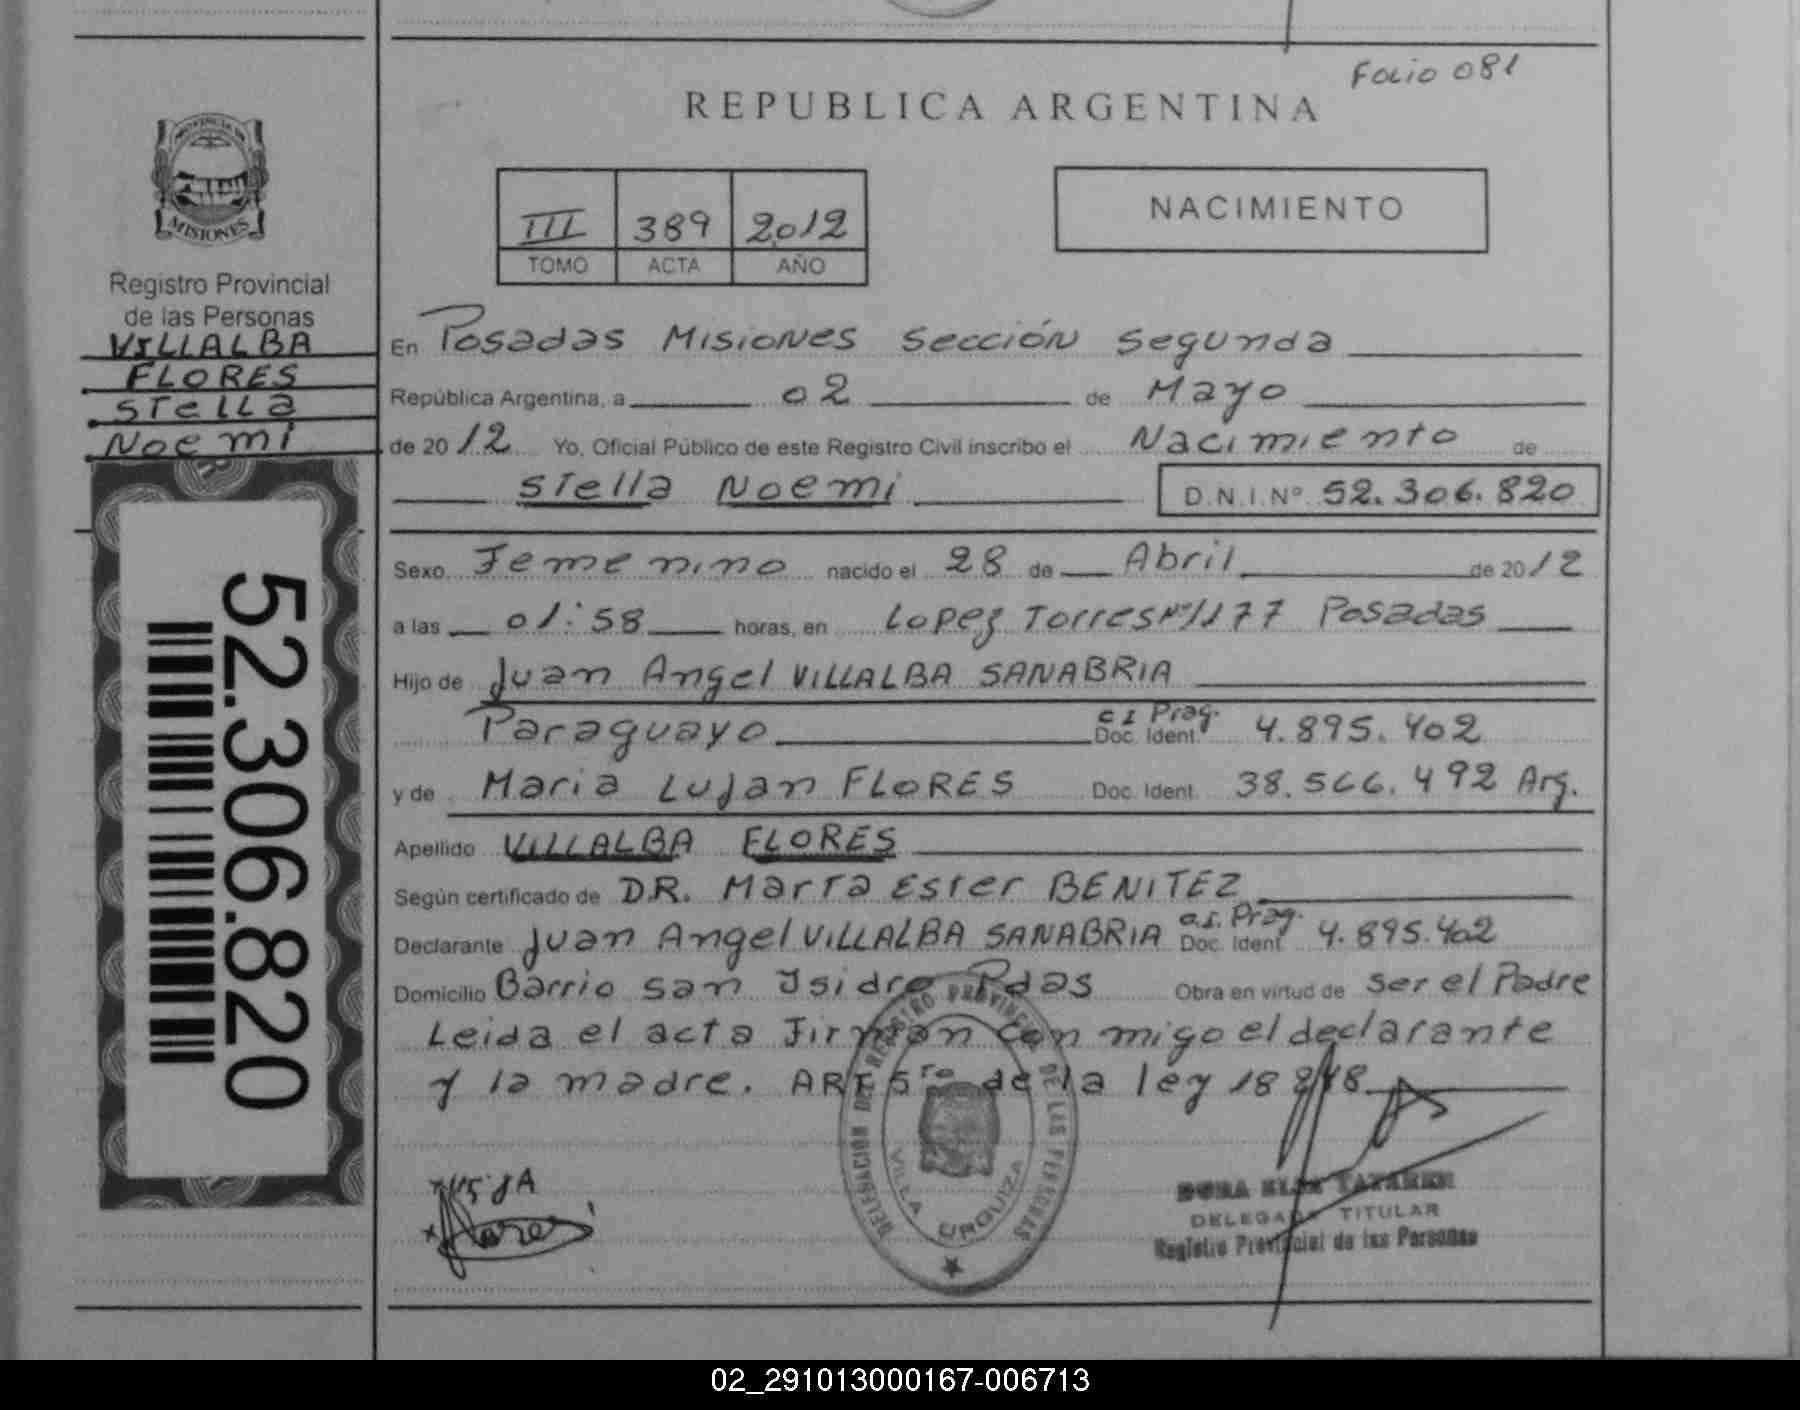 Folio 081
REPUBLICA ARGENTINA
PROVINCIA DE
MISIONES
III 389 2012
TOMO ACTA AÑO
NACIMIENTO
Registro Provincial
de las Personas
VILLALBA
FLORES
Stella
Noemi
52.306.820
En Posadas Misiones Sección Segunda
República Argentina, a 02 de Mayo
de 2012 Yo, Oficial Público de este Registro Civil inscribo el Nacimiento de
Stella Noemi D.N.I.Nº 52.306.820
Sexo Femenino nacido el 28 de Abril de 2012
a las 01:58 horas, en Lopez Torres Nº1177 Posadas
Hijo de Juan Angel VILLALBA SANABRIA
Paraguayo c I Prag. Doc. Ident. 4.895.402
y de Maria Lujan FLORES Doc. Ident. 38.566.492 Arg.
Apellido VILLALBA FLORES
Según certificado de DR. Marta Ester BENITEZ
Declarante Juan Angel VILLALBA SANABRIA c.I. Prag. Doc. Ident 4.895.402
Domicilio Barrio San Isidro Pdas Obra en virtud de ser el Padre
Leida el acta Firman con migo el declarante
y la madre. ART 5to de la ley 18248
DELEGACIÓN DEL REGISTRO PROVINCIAL DE LAS PERSONAS
VILLA URQUIZA
Flores
DELEGADA TITULAR
Registro Provincial de las Personas
02_291013000167-006713